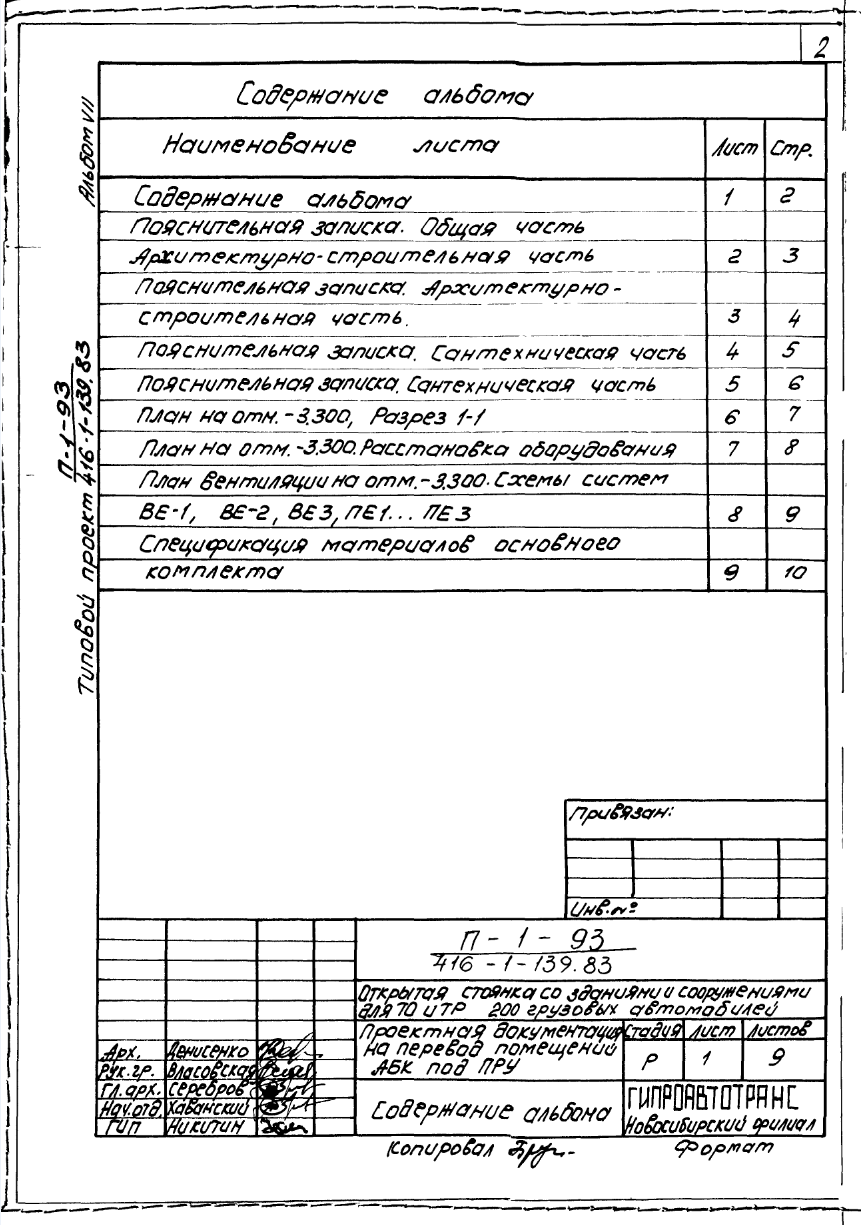 2
Альбом VII
П-1-93
Типовой проект 416-1-139.83
Содержание альбома
Наименование листа Лист Стр.
Содержание альбома 1 2
Пояснительная записка. Общая часть
Архитектурно-строительная часть 2 3
Пояснительная записка. Архитектурно-
строительная часть. 3 4
Пояснительная записка. Сантехническая часть 4 5
Пояснительная записка. Сантехническая часть 5 6
План на отм. -3,300, Разрез 1-1 6 7
План на отм. -3,300. Расстановка оборудования 7 8
План вентиляции на отм. -3,300. Схемы систем
ВЕ-1, ВЕ-2, ВЕ3, ПЕ1... ПЕ3 8 9
Спецификация материалов основного
комплекта 9 10
Привязан:
Инв. №
П - 1 - 93
416 - 1 - 139.83
Открытая стоянка со зданиями и сооружениями
для ТО и ТР 200 грузовых автомобилей
Проектная документация
на перевод помещений
АБК под ПРУ
Стадия Лист Листов
Р 1 9
Арх. Денисенко
Рук.гр. Власовская
Гл.арх. Серебров
Нач.отд. Хаванский
ГИП Никитин
Содержание альбома
ГИПРОАВТОТРАНС
Новосибирский филиал
Копировал
Формат